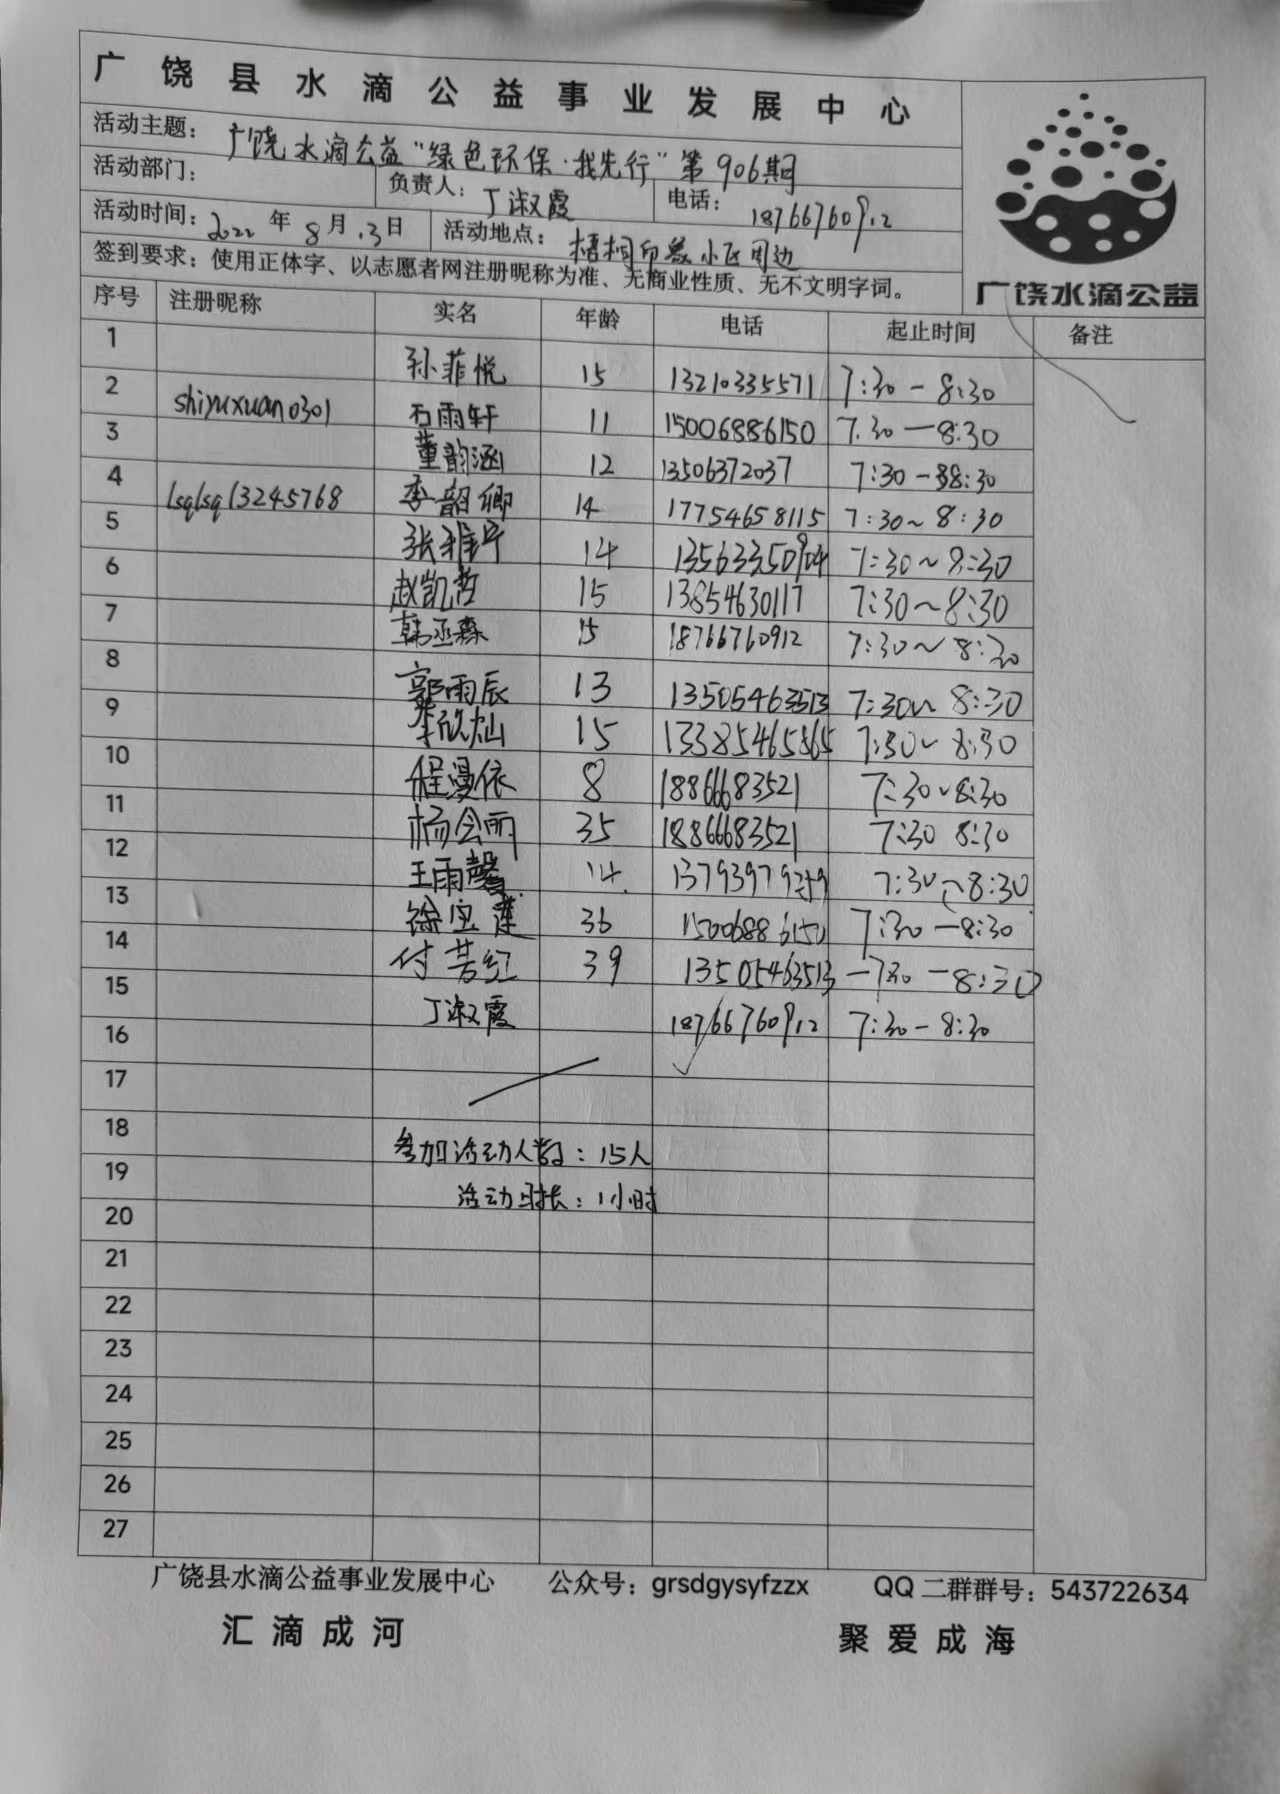 广饶县水滴公益事业发展中心
活动主题：广饶水滴公益“绿色环保·我先行”第906期
活动部门： 负责人：丁淑霞 电话：18766760912
活动时间：2022年8月13日 活动地点：梧桐印象小区周边
签到要求：使用正体字、以志愿者网注册昵称为准、无商业性质、无不文明字词。
广饶水滴公益
序号 注册昵称 实名 年龄 电话 起止时间 备注
1 孙菲悦 15 13210335571 7:30-8:30
2 shiyuxuan0301 石雨轩 11 15006886150 7.30-8:30
3 董韵涵 12 13506372037 7:30-8:30
4 lsqlsq13245768 李韶卿 14 17754658115 7:30~8:30
5 张雅宁 14 13563350904 7:30~8:30
6 赵凯哲 15 13854630117 7:30~8:30
7 韩丞森 15 18766760912 7:30~8:30
8 郭雨辰 13 13505463513 7:30~8:30
9 李欣灿 15 13385465865 7:30~8:30
10 程漫依 8 18866683521 7:30~8:30
11 杨会丽 35 18866683521 7:30 8:30
12 王雨馨 14 7:30~8:30
13 徐宝莲 36 15006886150 7:30-8:30
14 付芳红 39 13505463513 -7:30-8:30
15 丁淑霞 18766760912 7:30-8:30
16
17
18 参加活动人数：15人
19 活动时长：1小时
20
21
22
23
24
25
26
27
广饶县水滴公益事业发展中心 公众号：grsdgysyfzzx QQ二群群号：543722634
汇滴成河 聚爱成海